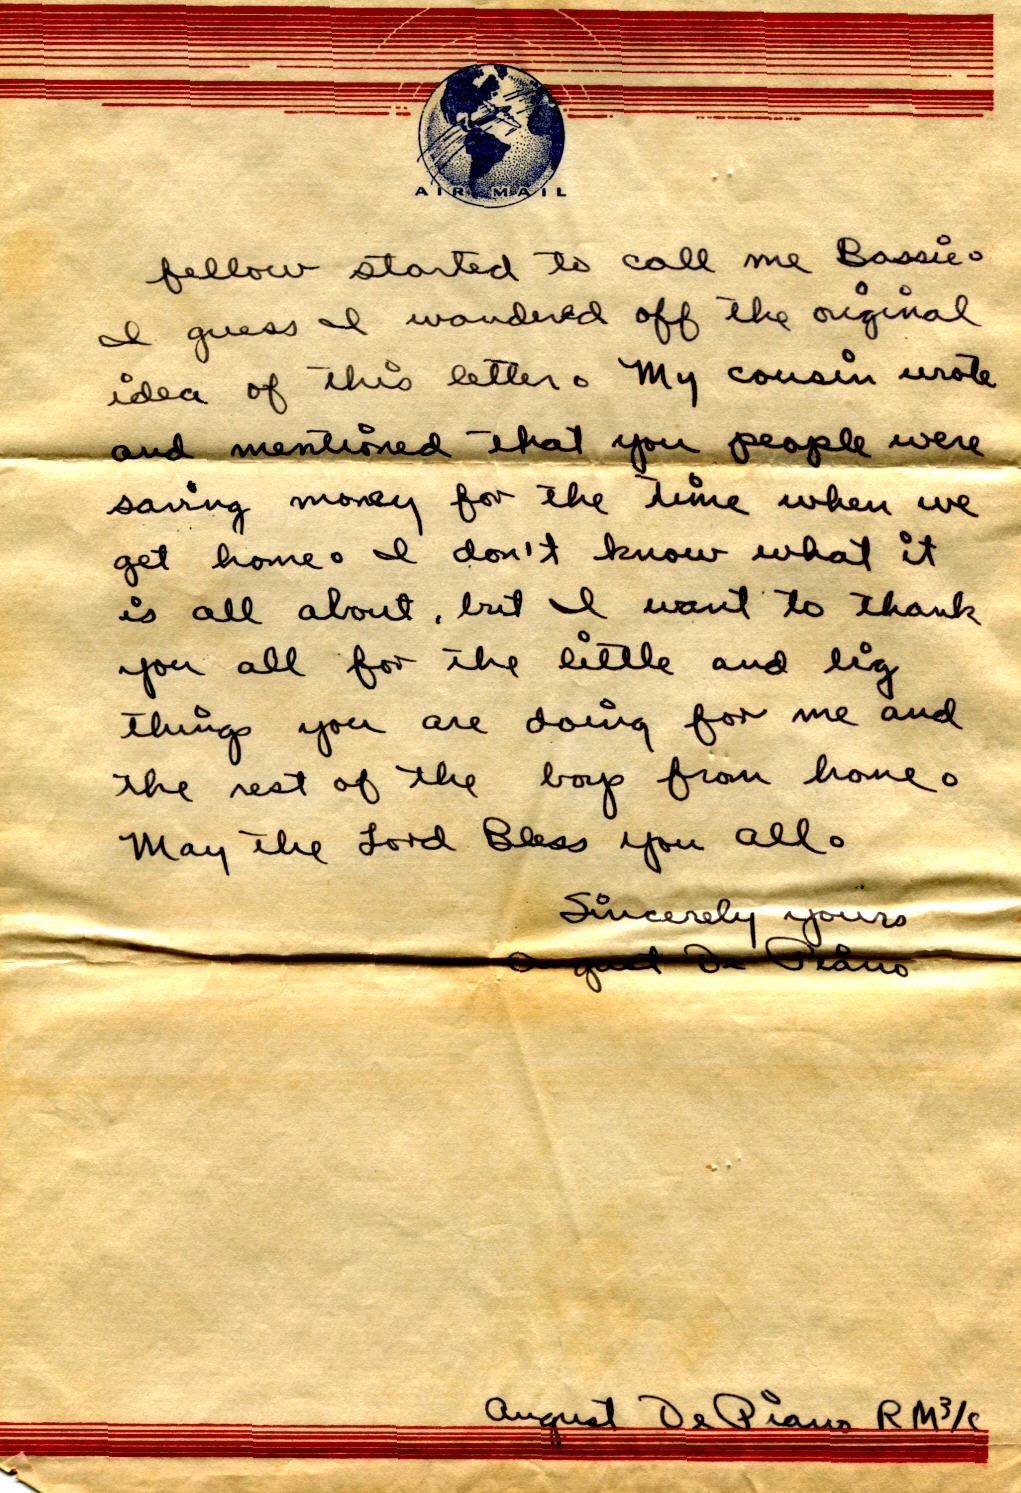 AIR MAIL
fellow started to call me Bassie.
I guess I wandered off the original
idea of this letter. My cousin wrote
and mentioned that you people were
saving money for the time when we
get home. I don't know what it
is all about, but I want to thank
you all for the little and big
things you are doing for me and
the rest of the boys from home.
May the Lord Bless you all.
Sincerely yours
August De Piano
August De Piano RM3/c